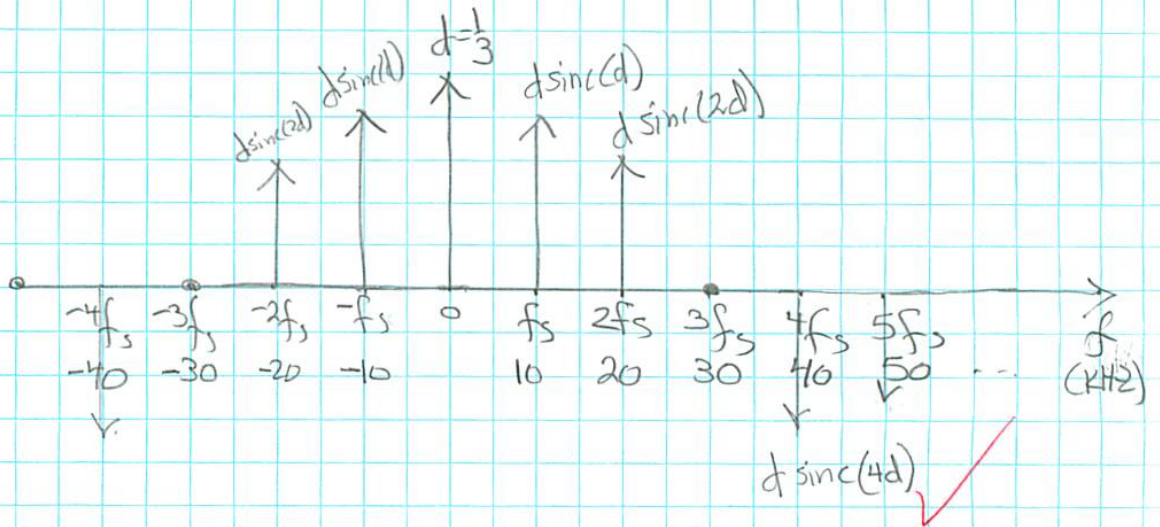 d=1/3
dsinc(d)
dsinc(d)
dsinc(2d)
dsinc(2d)
-4fs -3fs -2fs -fs 0 fs 2fs 3fs 4fs 5fs f
-40 -30 -20 -10 10 20 30 40 50 ... (KHz)
d sinc(4d)